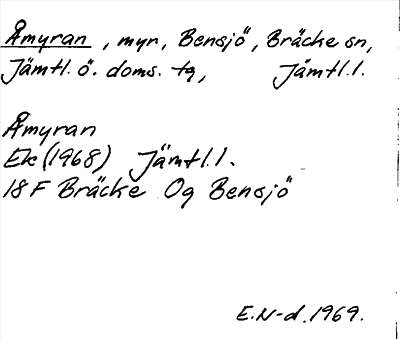 Åmyran, myr, Bensjö, Bräcke sn,
Jämtl. ö. doms. tg, Jämtl. l.
Åmyran
Ek (1968) Jämtl. l.
18 F Bräcke Og Bensjö
E.N-d. 1969.